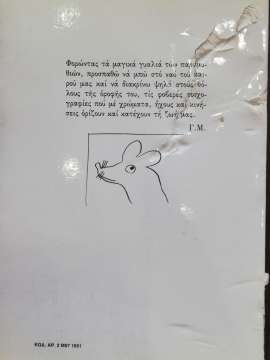 Φορώντας τά μαγικά γυαλιά τῶν παραμυ-
θιῶν, προσπαθῶ νά μπῶ στό ναό τοῦ και-
ροῦ μας καί νά διακρίνω ψηλά στούς θό-
λους τῆς ὀροφῆς του, τίς φοβερές τοιχο-
γραφίες πού μέ χρώματα, ἤχους καί κινή-
σεις ὁρίζουν καί κατέχουν τή ζωή μας.
Γ.Μ.
ΚΩΔ. ΑΡ. 2 ΜΒΤ 1981